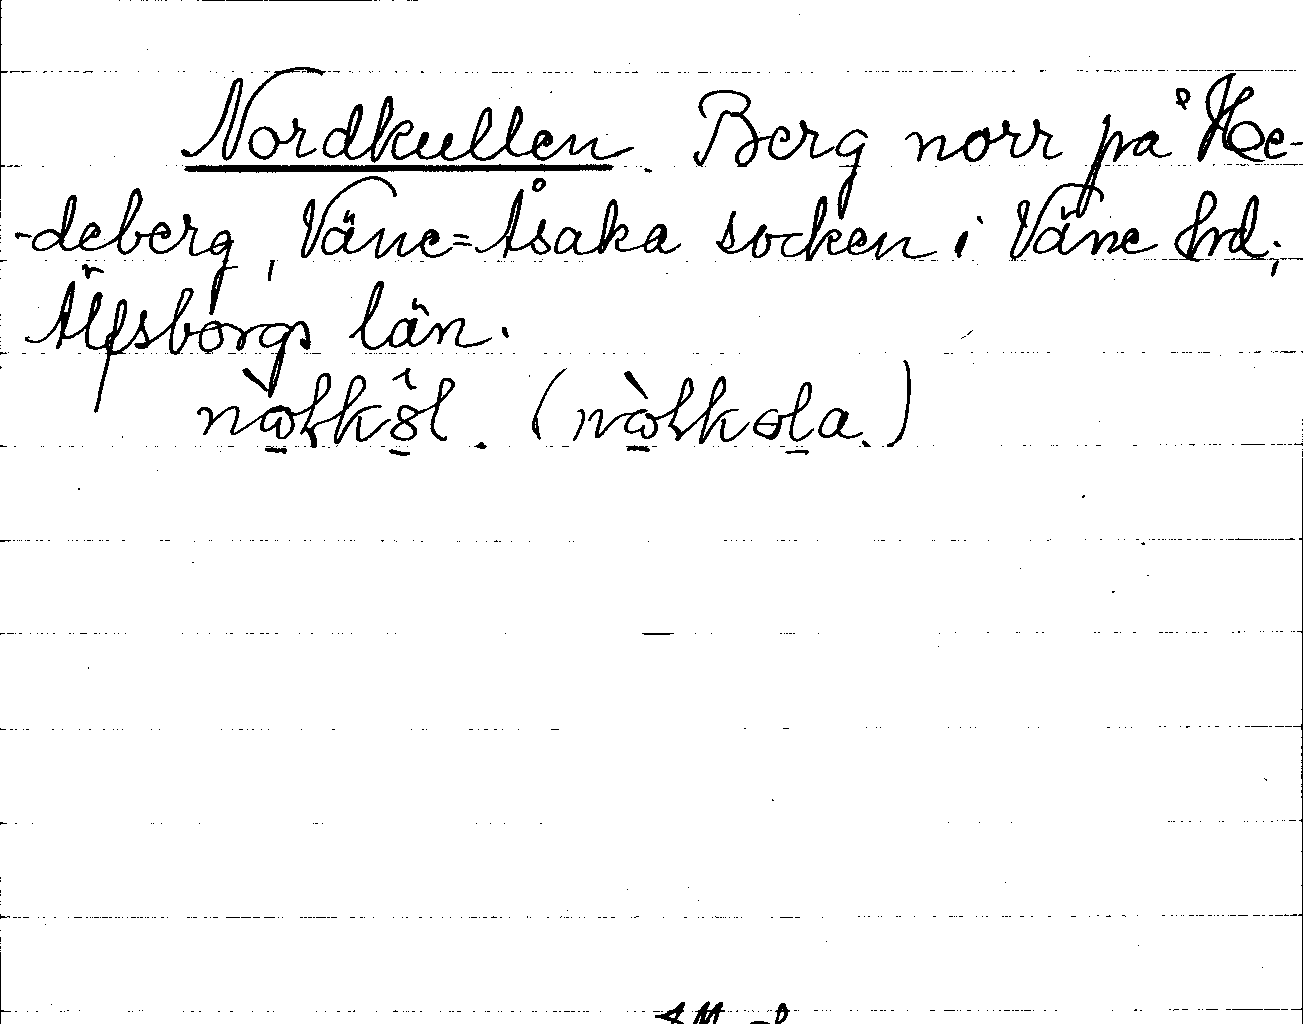 Nordkullen. Berg norr på He-
-deberg, Väne=Åsaka socken i Väne hrd,
Älfsborgs län.